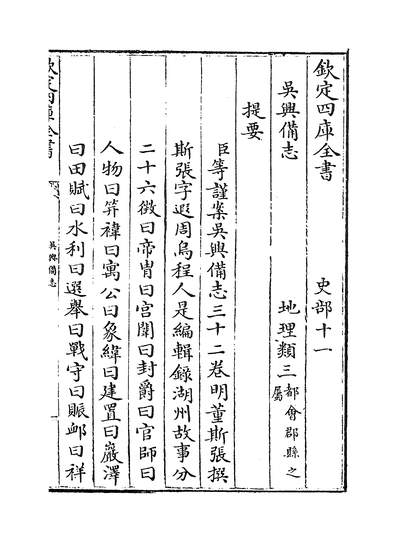 欽定四庫全書
史部十一
吳興備志
地理類三都會郡縣之屬
提要
臣等謹案吳興備志三十二卷明董斯張撰
斯張字遐周烏程人是編輯錄湖州故事分
二十六徵曰帝胄曰宮闈曰封爵曰官師曰
人物曰笄褘曰寓公曰象緯曰建置曰巖澤
曰田賦曰水利曰選舉曰戰守曰賑卹曰祥
欽定四庫全書
吳興備志